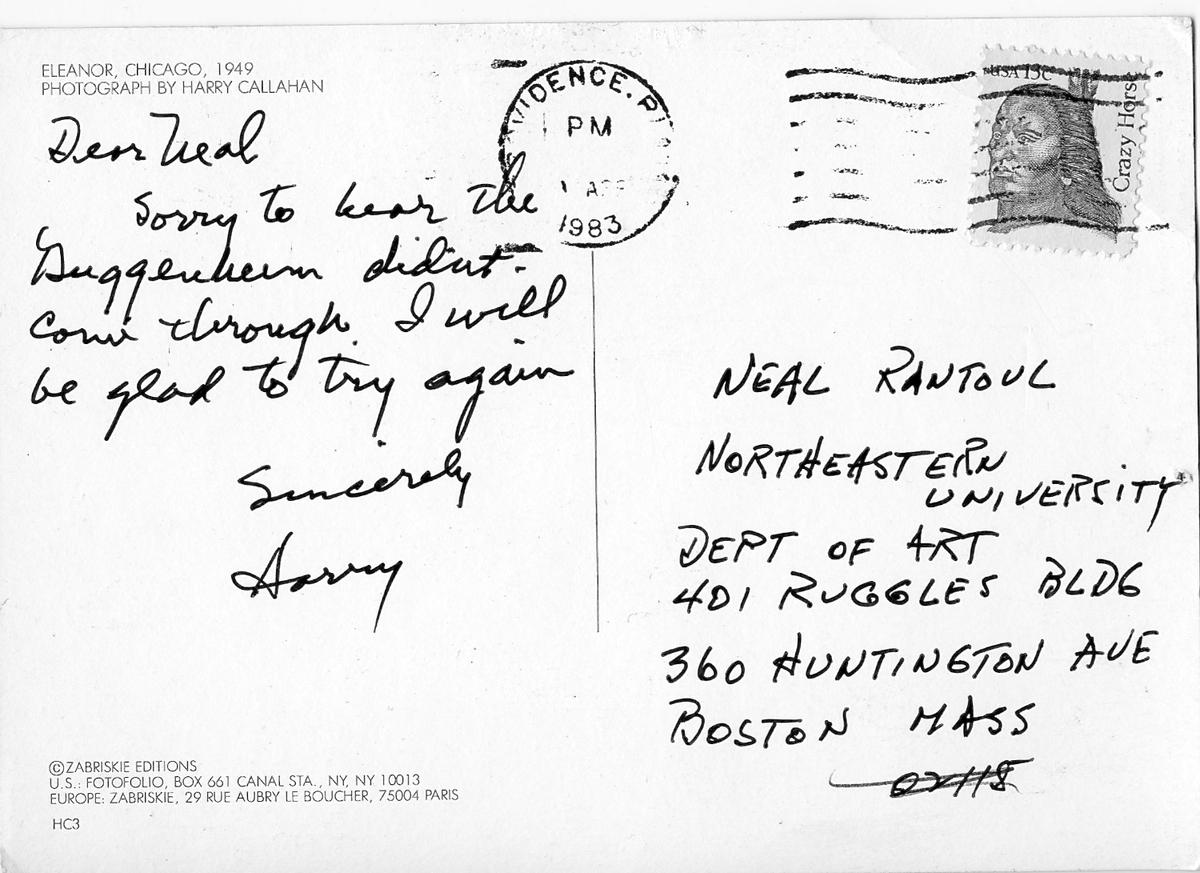 ELEANOR, CHICAGO, 1949
PHOTOGRAPH BY HARRY CALLAHAN
Dear Neal
Sorry to hear the
Guggenheim didn't
come through. I will
be glad to try again
Sincerely
Harry
©ZABRISKIE EDITIONS
U.S.: FOTOFOLIO, BOX 661 CANAL STA., NY, NY 10013
EUROPE: ZABRISKIE, 29 RUE AUBRY LE BOUCHER, 75004 PARIS
HC3
VIDENCE, RI
PM
APR
1983
USA 13c
Crazy Horse
NEAL RANTOUL
NORTHEASTERN
UNIVERSITY
DEPT OF ART
401 RUGGLES BLDG
360 HUNTINGTON AVE
BOSTON MASS
02115